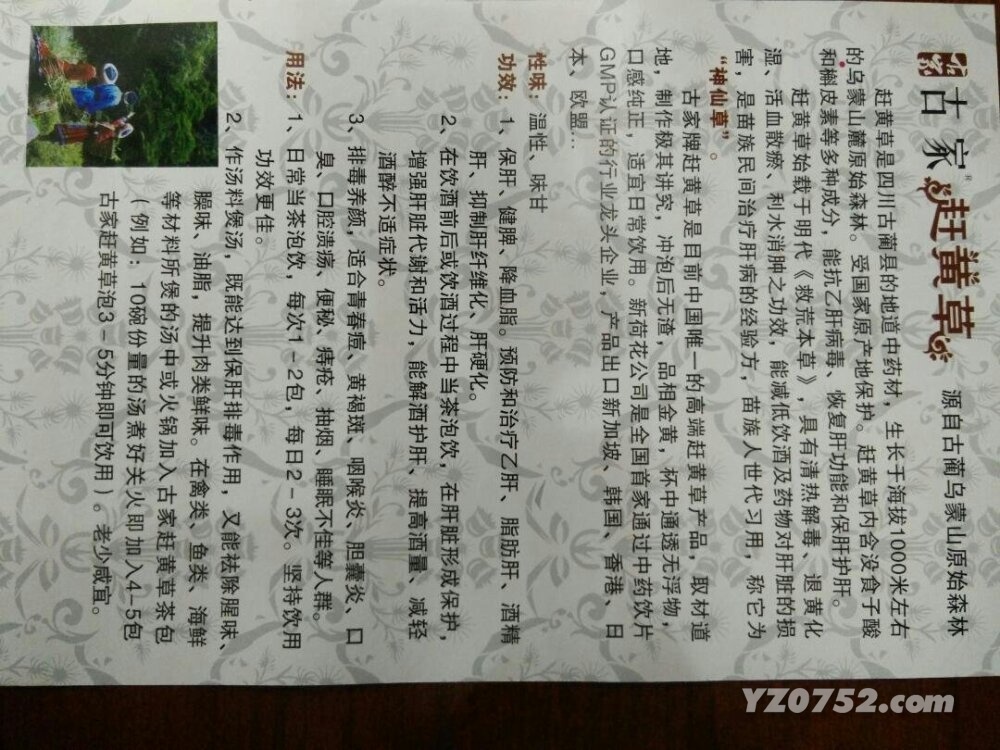 古家®赶黄草 源自古蔺乌蒙山原始森林
赶黄草是四川古蔺县的地道中药材，生长于海拔1000米左右
的乌蒙山麓原始森林。受国家原产地保护。赶黄草内含没食子酸
和槲皮素等多种成分，能抗乙肝病毒、恢复肝功能和保肝护肝。
赶黄草始载于明代《救荒本草》，具有清热解毒、退黄化
湿、活血散瘀、利水消肿之功效，能减低饮酒及药物对肝脏的损
害，是苗族民间治疗肝病的经验方，苗族人世代习用，称它为
“神仙草”。
古家牌赶黄草是目前中国唯一的高端赶黄草产品，取材道
地，制作极其讲究，冲泡后无渣，品相金黄，杯中通透无浮物，
口感纯正，适宜日常饮用。新荷花公司是全国首家通过中药饮片
GMP认证的行业龙头企业，产品出口新加坡、韩国、香港、日
本、欧盟...
性味：温性、味甘
功效：1、保肝、健脾、降血脂。预防和治疗乙肝、脂肪肝、酒精
肝、抑制肝纤维化、肝硬化。
2、在饮酒前后或饮酒过程中当茶泡饮，在肝脏形成保护，
增强肝脏代谢和活力，能解酒护肝、提高酒量、减轻
酒醉不适症状。
3、排毒养颜，适合青春痘、黄褐斑、咽喉炎、胆囊炎、口
臭、口腔溃疡、便秘、痔疮、抽烟、睡眠不佳等人群。
用法：1、日常当茶泡饮，每次1-2包，每日2-3次。坚持饮用
功效更佳。
2、作汤料煲汤，既能达到保肝排毒作用，又能祛除腥味、
臊味、油脂，提升肉类鲜味。在禽类、鱼类、海鲜
等材料所煲的汤中或火锅加入古家赶黄草茶包
（例如：10碗份量的汤煮好关火即加入4-5包
古家赶黄草泡3-5分钟即可饮用）。老少咸宜。
YZ0752.com